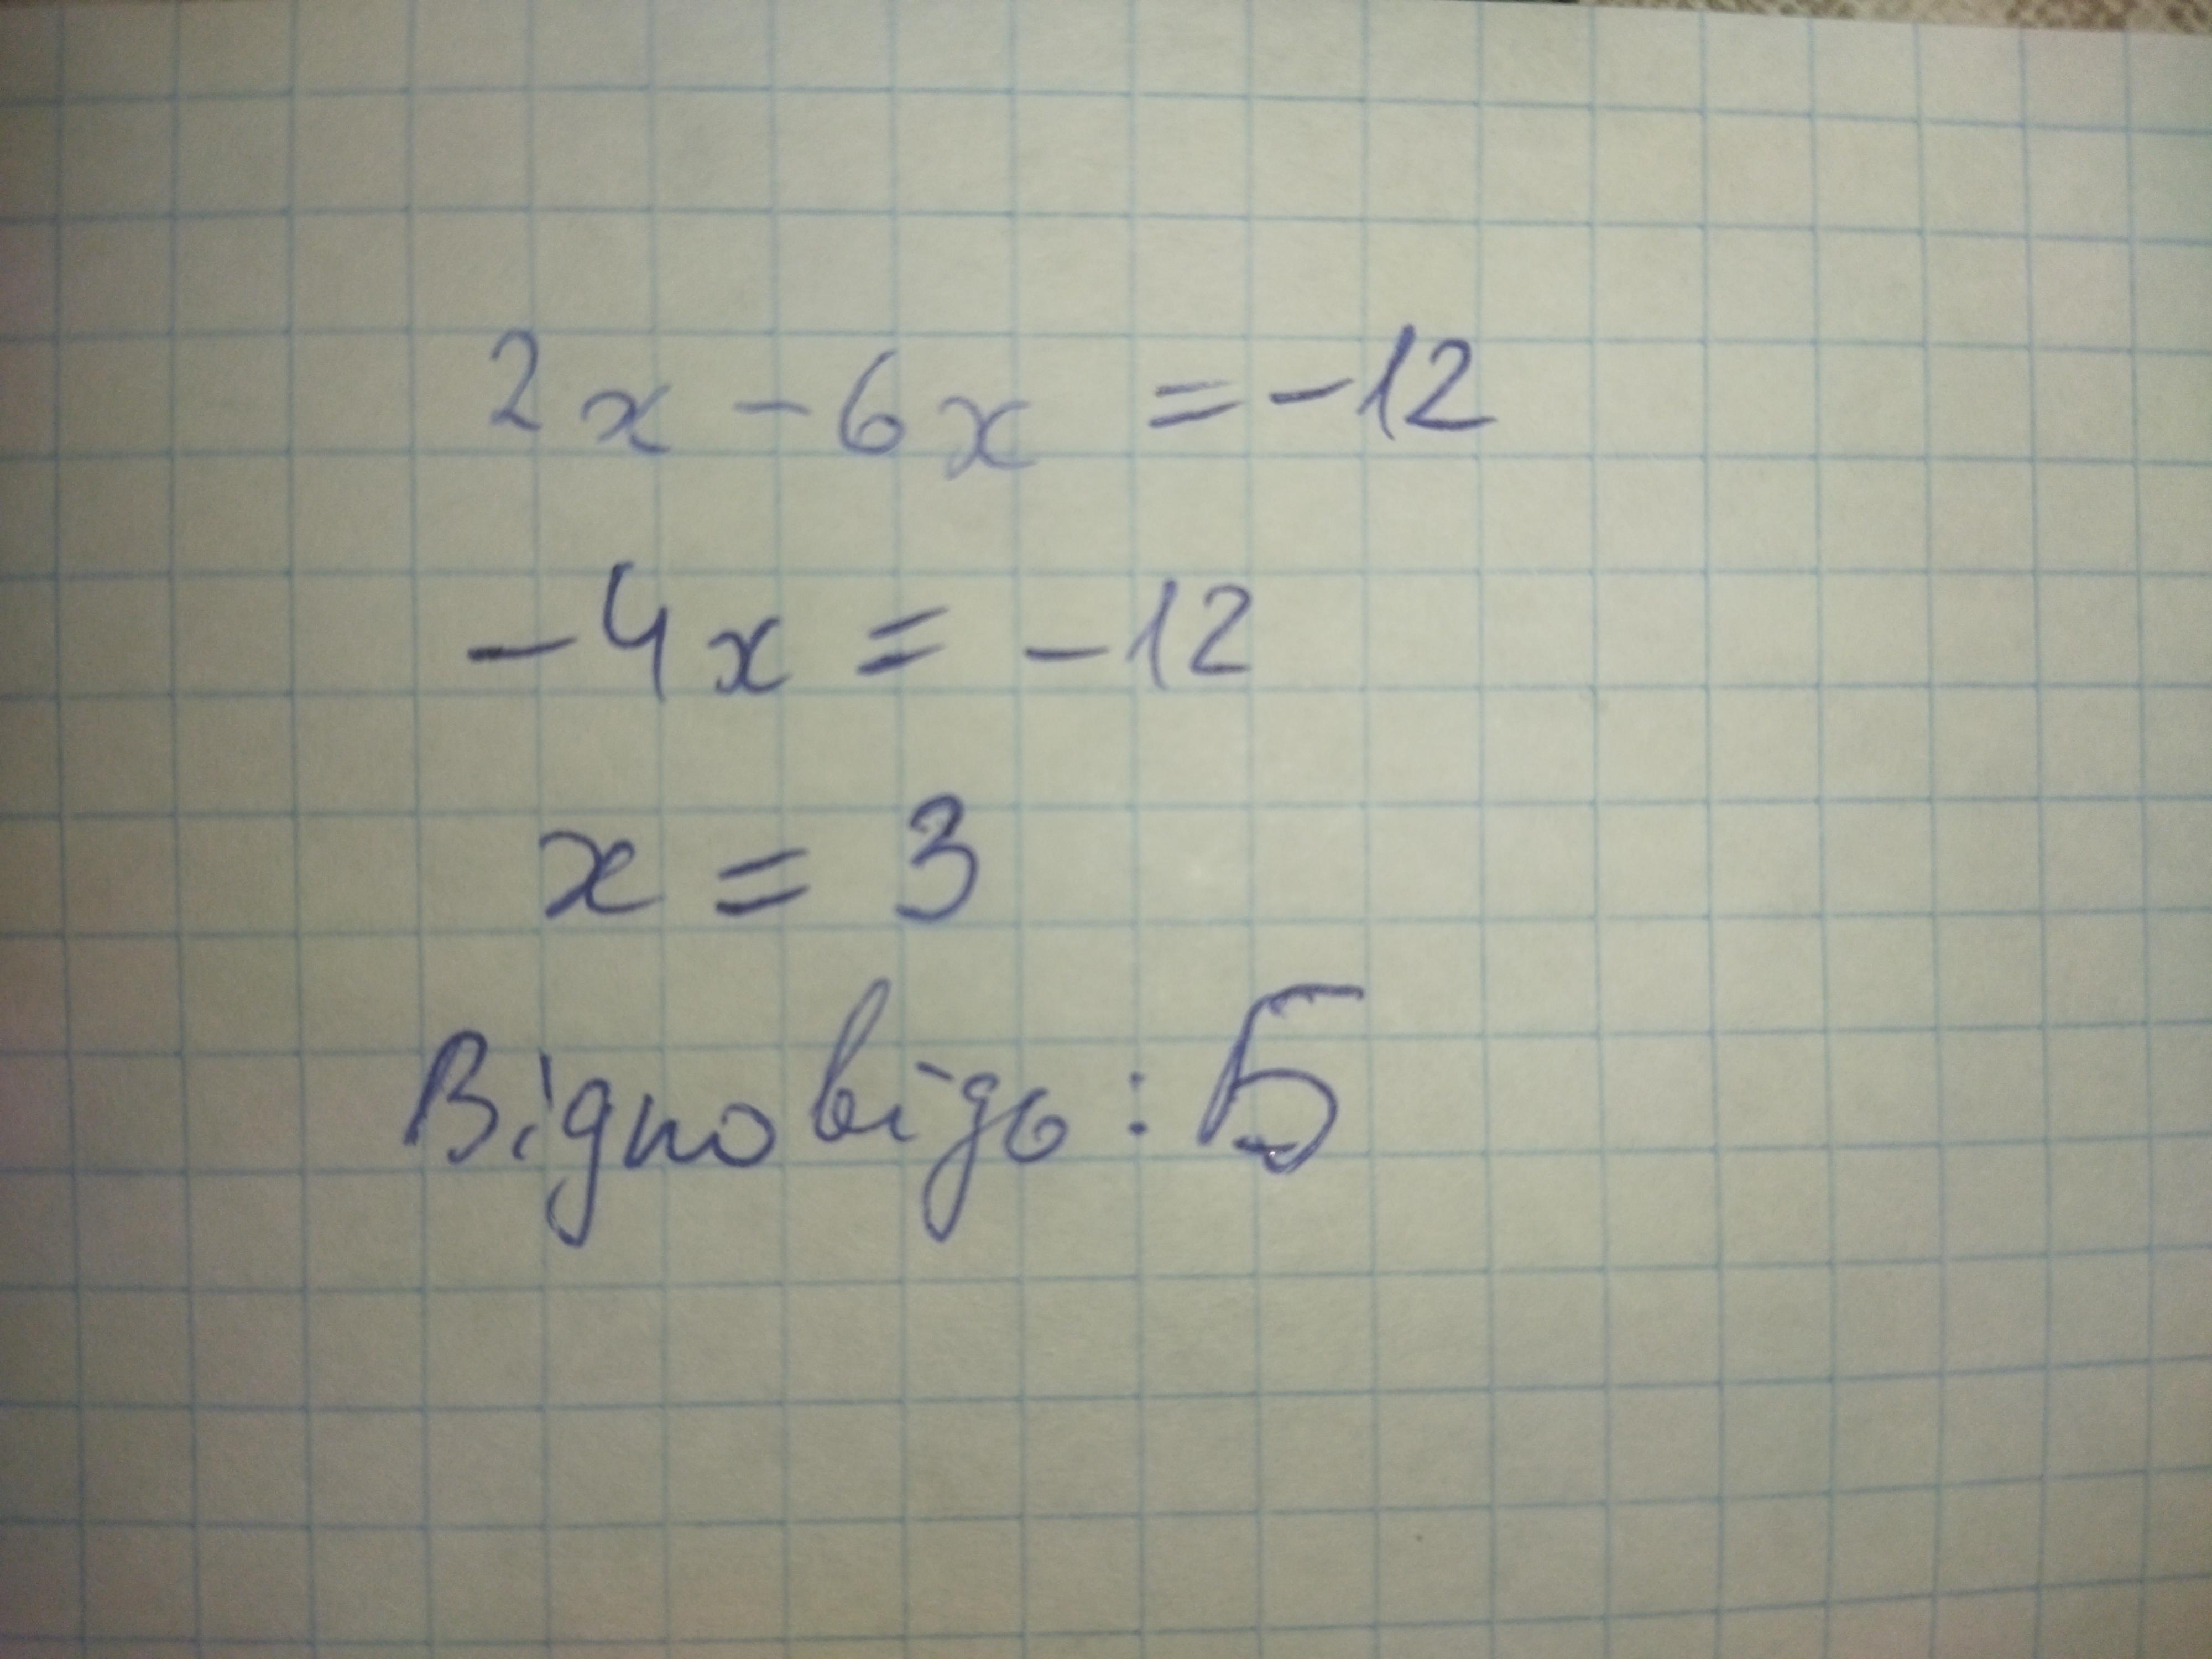 2x - 6x = -12
-4x = -12
x = 3
Відповідь: Б